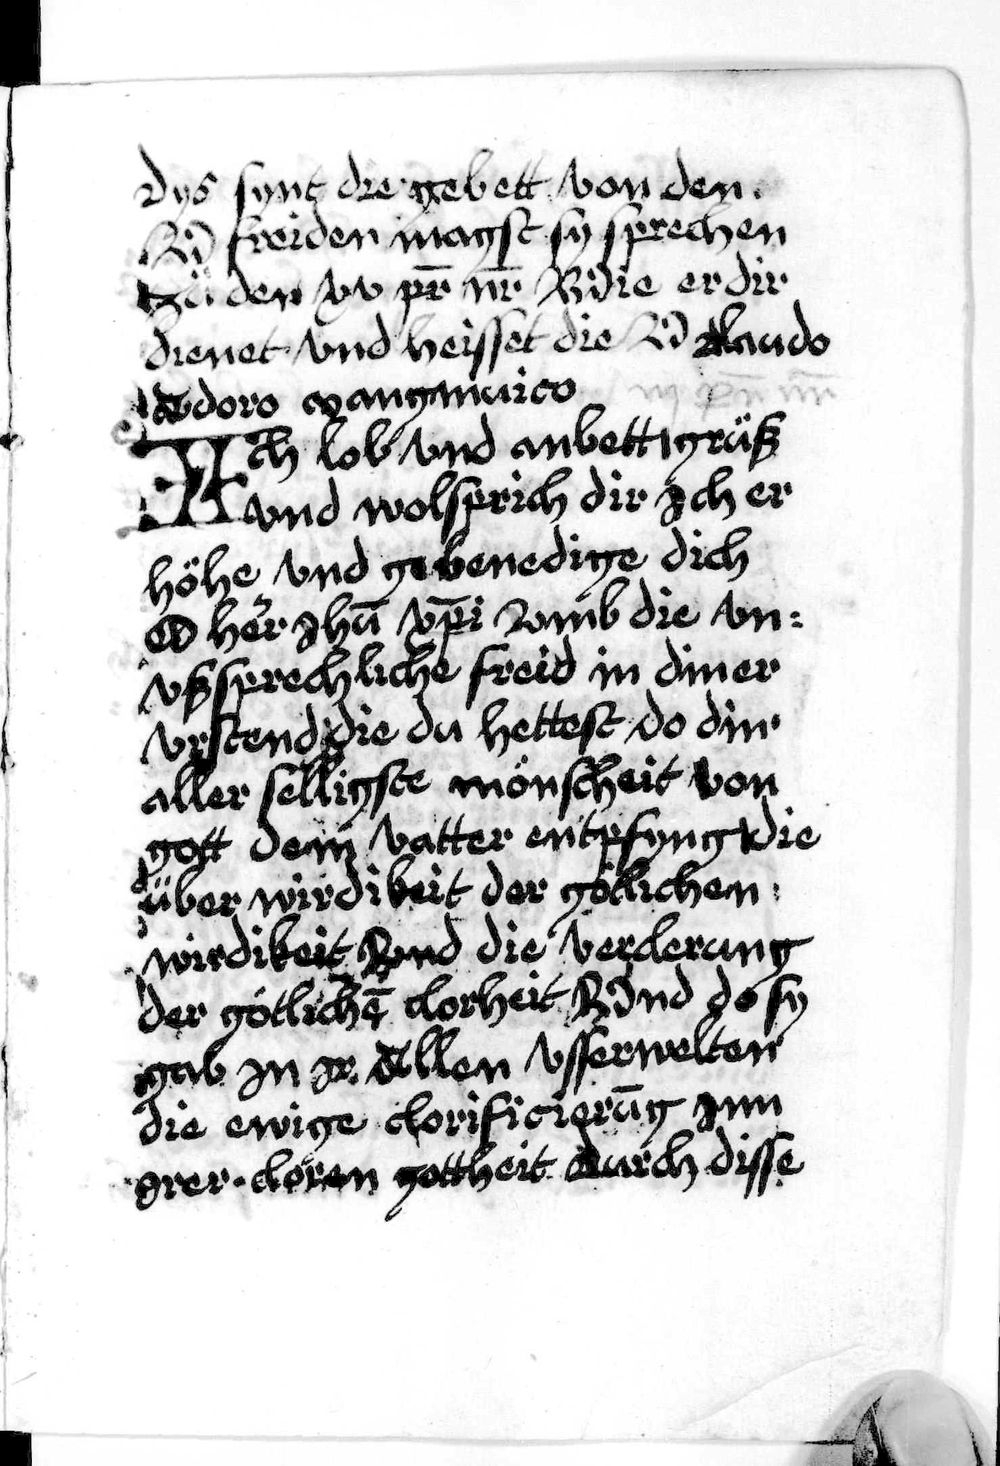 dys synt die gebett von den
xv freiden magst sy sprechen
zů den xv pr̄ nr̄ die er dir
dienet vnd heisset die xv laudo
Adoro mangnuico
Ich lob vnd anbett grüß
vnd wolsprich dir Ich er
höhe vnd gebenedige dich
O her Jhū xp̄i vmb die vn=
vßsprechliche freid in diner
vrstend die du hettest do din
aller selligste mönscheit von
gott dem vatter entpfyng die
über wirdikeit der götlichen
wirdikeit Vnd die verclerung
der götlichē clorheit Vnd do sy
gab in Allen vsserwelten
die ewige clorificierūg Inn
Irer cloren gottheit durch disse